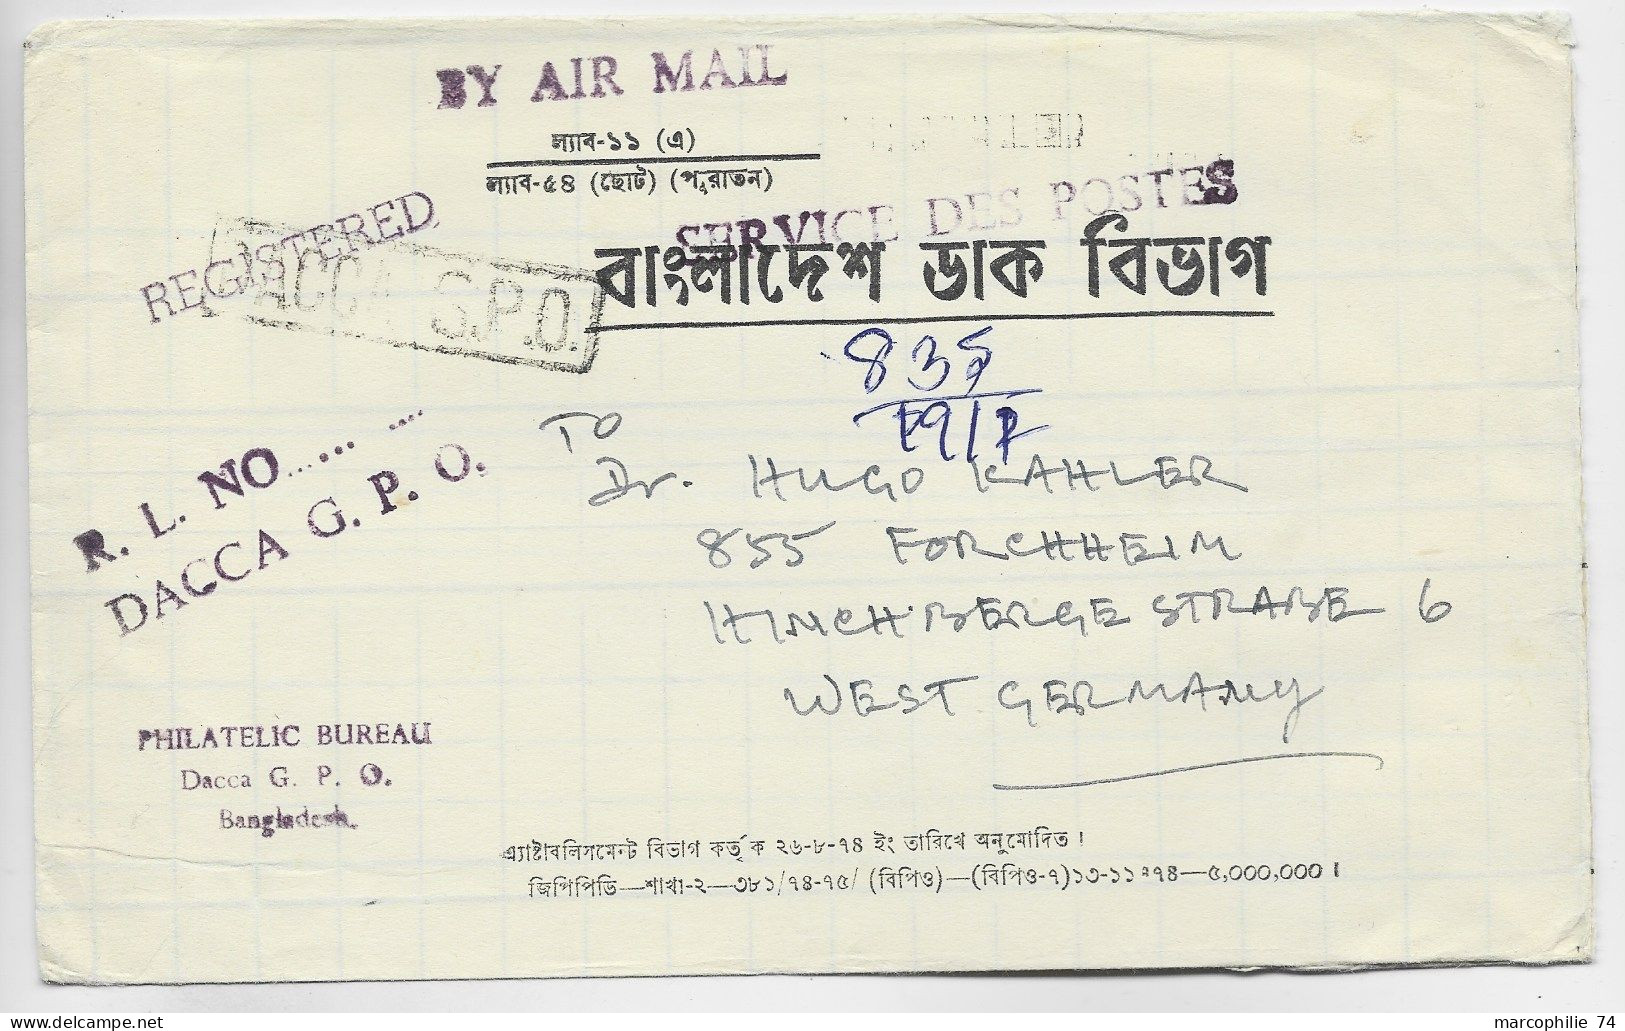 BY AIR MAIL
ল্যাব-১১ (এ)
ল্যাব-৫৪ (ছোট) (পুরাতন)
REGISTERED
SERVICE DES POSTES
DACCA G.P.O.
বাংলাদেশ ডাক বিভাগ
835
R. L. NO...... ....
DACCA G. P. O.
TO
Dr. HUGO KAHLER
855 FORCHHEIM
HINCH BERGE STRABE 6
WEST GERMANY
PHILATELIC BUREAU
Dacca G. P. O.
Bangladesh.
এ্যাষ্টাবলিসমেন্ট বিভাগ কর্তৃক ২৬-৮-৭৪ ইং তারিখে অনুমোদিত।
জিপিপিডি—শাখা-২—৩৮১/৭৪-৭৫/ (বিপিও)—(বিপিও-৭)১৩-১১-৭৪—৫,০০০,০০০।
marcophilie 74